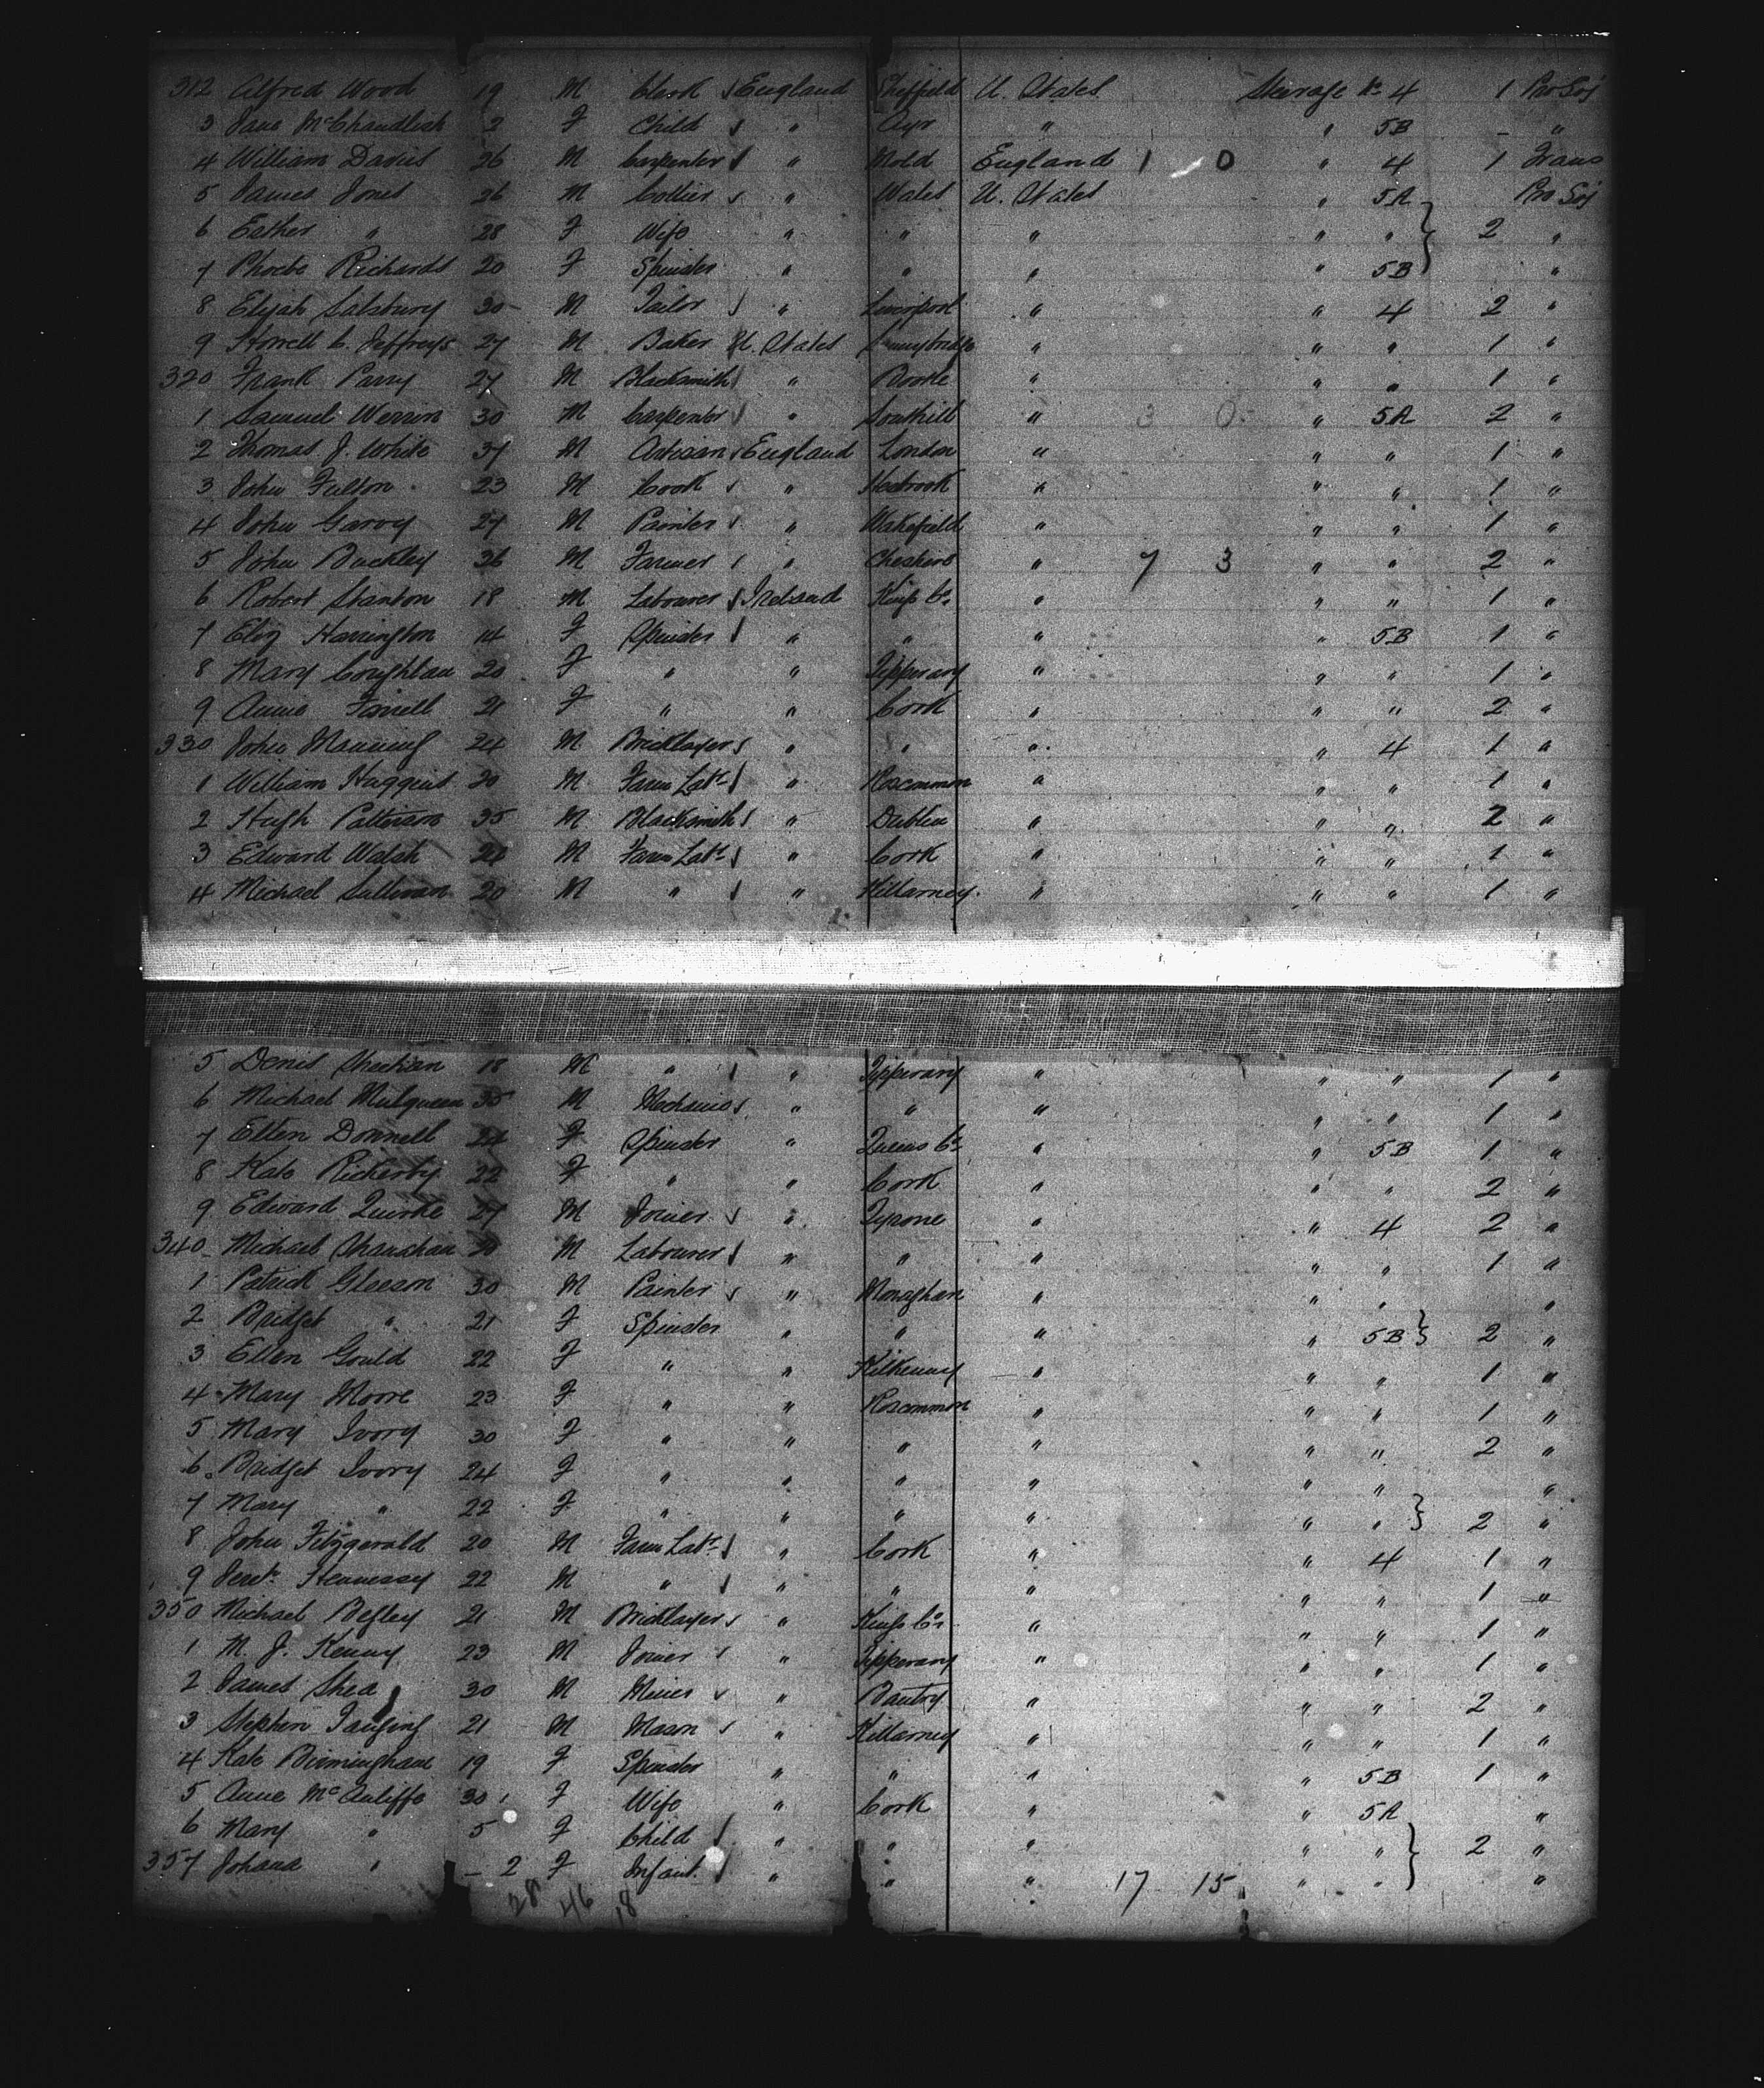 312 Alfred Wood 19 M Clerk England Sheffield U. States Steerage No 4 1 Pro Soj
3 Jane McChandlish 2 F Child " Ayr " " 5B - "
4 William Davies 26 M Carpenter " Mold England 1 0 " 4 1 Trans
5 James Jones 26 M Collier " Wales U. States " 5A Pro Soj
6 Esther " 28 F Wife " " " " " 2 "
7 Phoebe Richards 20 F Spinster " " " " 5B "
8 Elijah Salsbury 30 M Tailor " Liverpool " " 4 2 "
9 Howell C. Jeffreys 27 M Baker U. States " " " 1 "
320 Frank Parry 27 M Blacksmith " Bootle " " " 1 "
1 Samuel Werrin 30 M Carpenter " Southill " 3 0 " 5A 2 "
2 Thomas J. White 37 M Artisan England London " " " 1 "
3 John Fulton 23 M Cook " " " " 1 "
4 John Garvey 27 M Painter " Wakefield " " " 1 "
5 John Buckley 36 M Farmer " Cheshire " 7 3 " " 2 "
6 Robert Stanton 18 M Labourer Ireland Kings Co. " " " 1 "
7 Eliz Harrington 14 F Spinster " " " " 5B 1 "
8 Mary Coughlan 20 F " " Tipperary " " " 1 "
9 Annie Farrell 21 F " " Cork " " " 2 "
330 John Manning 24 M Bricklayer " " " " 4 1 "
1 William 20 M Farm Labr " Roscommon " " " 1 "
2 Hugh Patterson 35 M Blacksmith " Dublin " " " 2 "
3 Edward Walsh 24 M Farm Labr " Cork " " " 1 "
4 Michael Sullivan 20 M " " Killarney " " " 1 "
5 Denis Sheehan 18 M " " Tipperary " " " 1 "
6 Michael Mulqueen 35 M Mechanic " " " " " 1 "
7 Ellen Donnell 24 F Spinster " Queens Co. " " 5B 1 "
8 Kate Rickerby 22 F " " Cork " " " 2 "
9 Edward Quirke 27 M Joiner " Tyrone " " 4 2 "
340 Michael Shanahan 20 M Labourer " " " " " 1 "
1 Patrick Gleeson 30 M Painter " Monaghan " " " "
2 Bridget " 21 F Spinster " " " " 5B 2 "
3 Ellen Gould 22 F " " Kilkenny " " " 1 "
4 Mary Moore 23 F " " Roscommon " " " 1 "
5 Mary Ivory 30 F " " " " " " 2 "
6 Bridget Ivory 24 F " " " " " " "
7 Mary " 22 F " " " " " " 2 "
8 John Fitzgerald 20 M Farm Labr " Cork " " 4 1 "
9 Hennessy 22 M " " " " " " 1 "
350 Michael Begley 21 M Bricklayer " Kings Co. " " " 1 "
1 M. J. Kenny 23 M Joiner " Tipperary " " " 1 "
2 James Shea 30 M Miner " Bantry " " " 2 "
3 Stephen 21 M Mason " Killarney " " " 1 "
4 Kate Birmingham 19 F Spinster " " " " 5B 1 "
5 Anne McAuliffe 30 F Wife " Cork " " 5A "
6 Mary " 5 F Child " " " " " 2 "
357 Johana " - 2 F Infant " " " 17 15 " " "
28 46 18